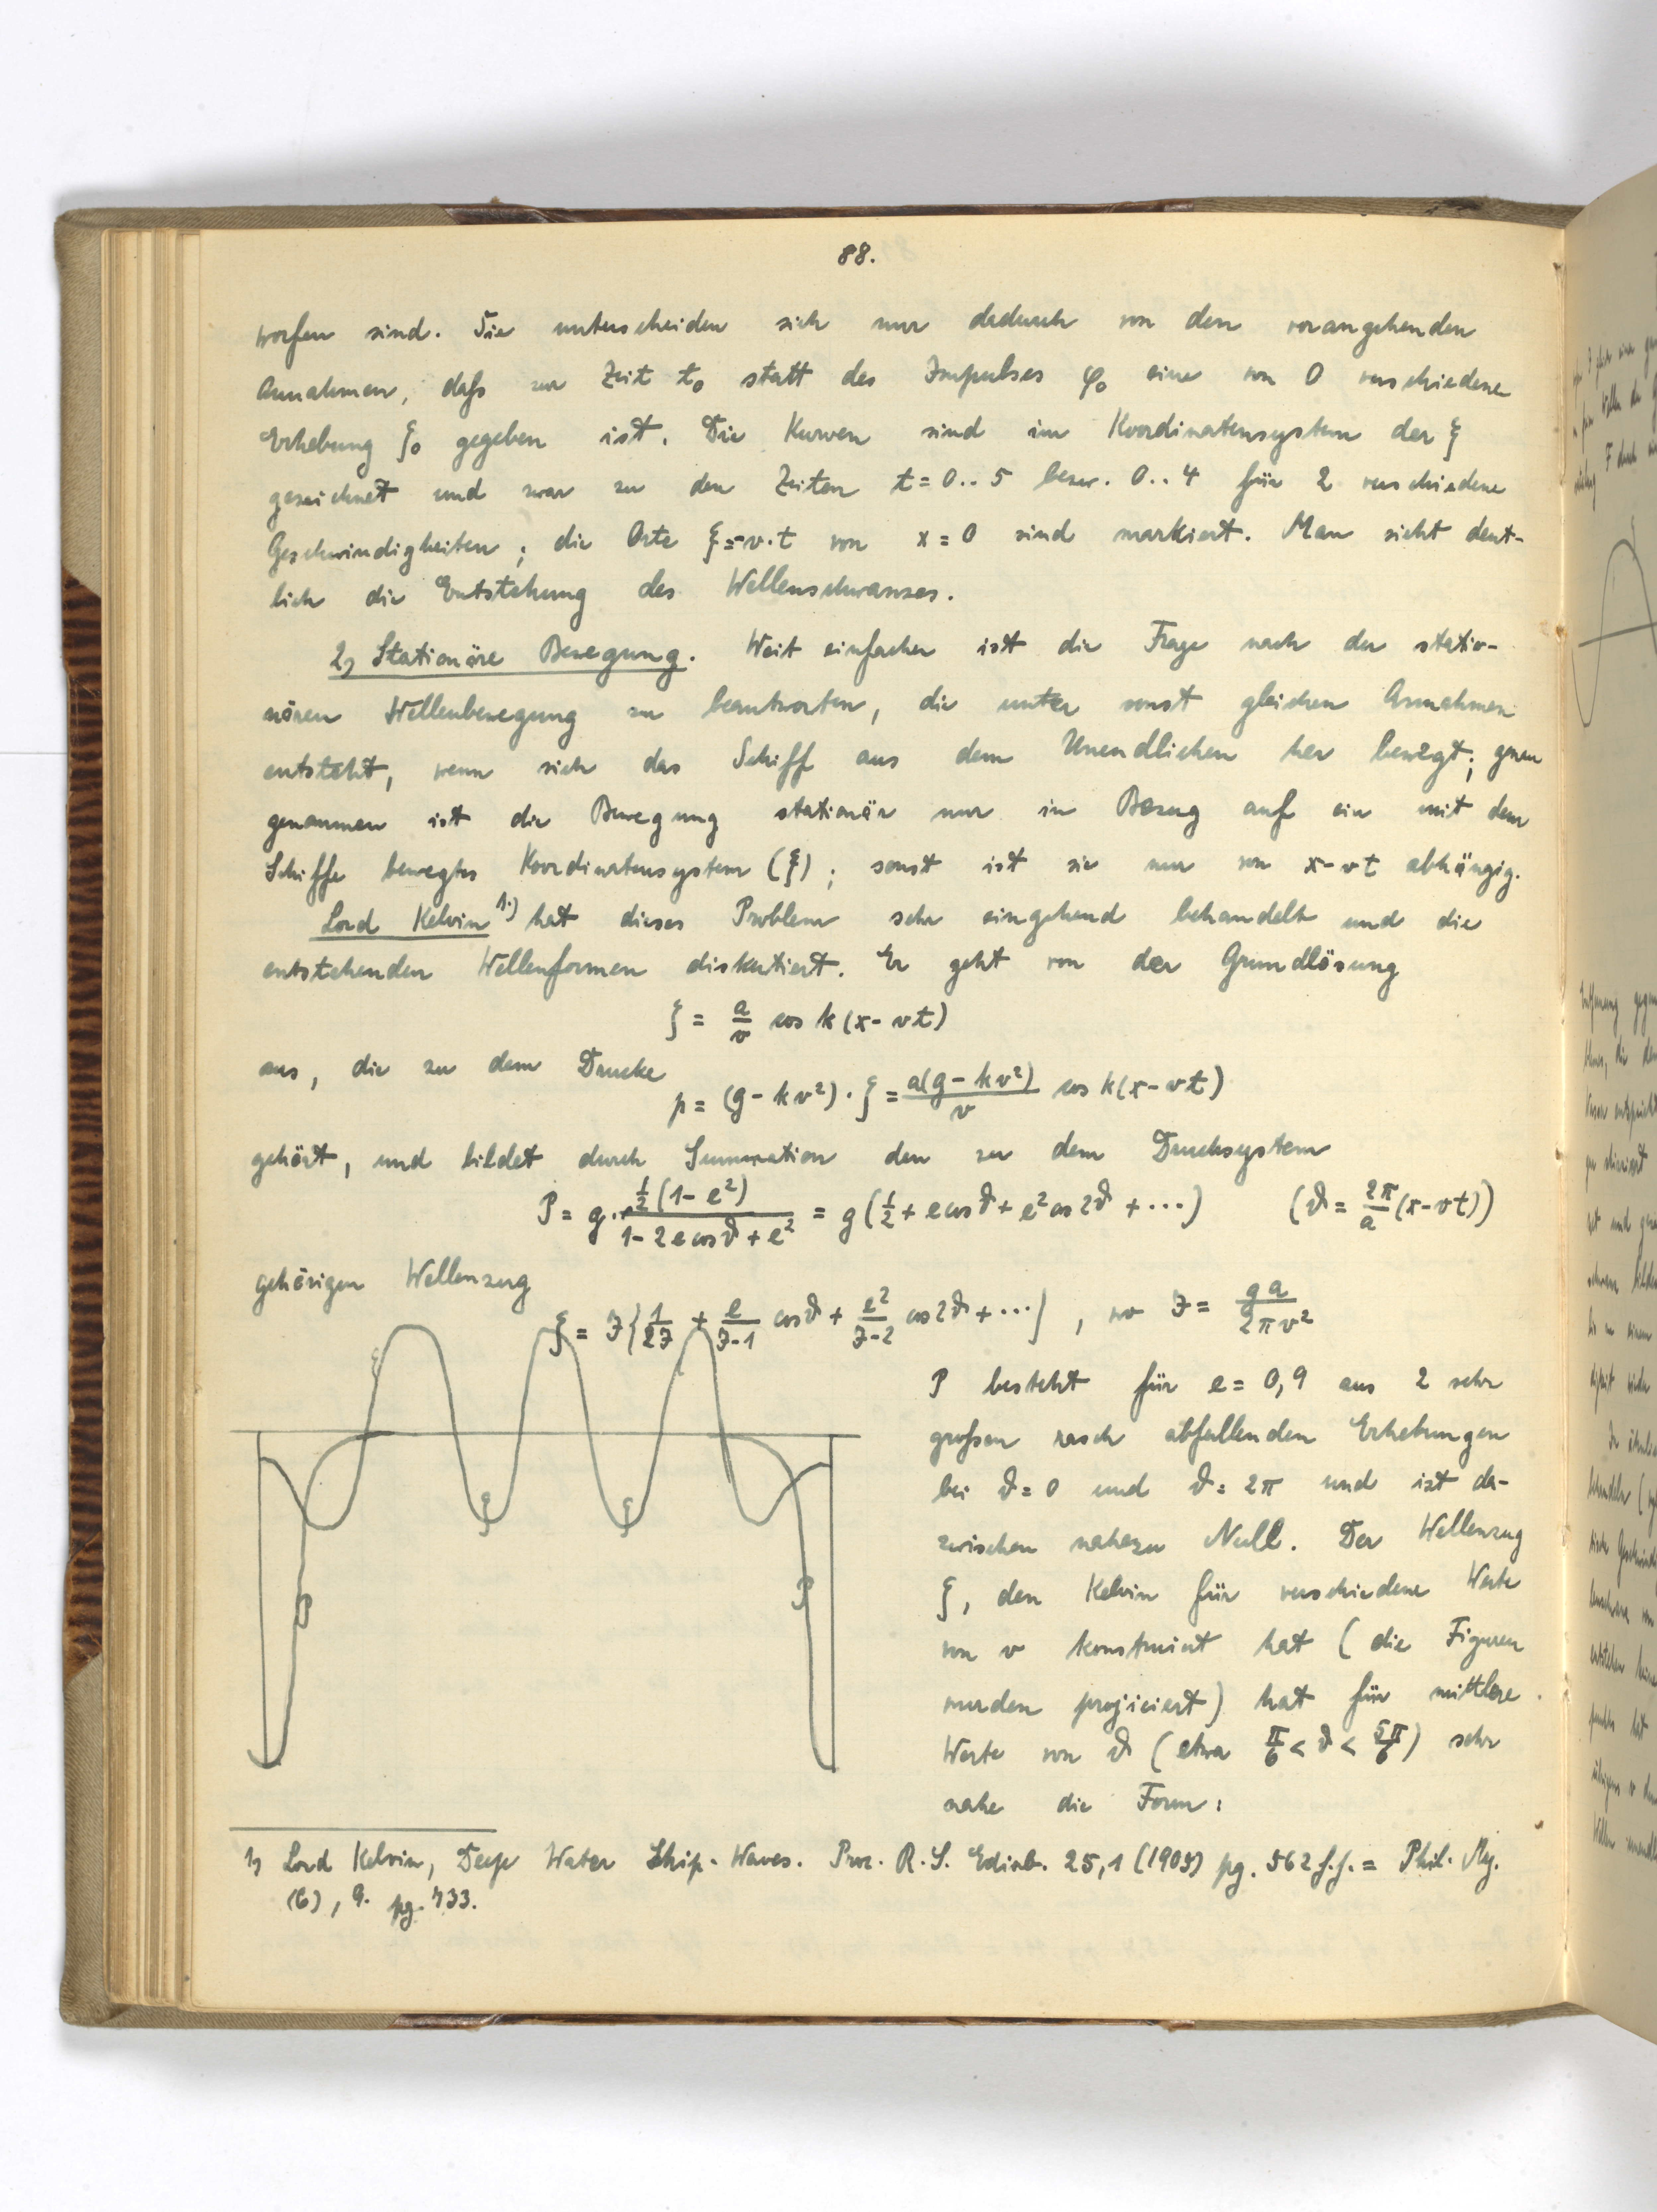 88.
worfen sind. Sie unterscheiden sich nur dadurch von den vorangehenden
Annahmen, daß zur Zeit t₀ statt des Impulses φ₀ eine von 0 verschiedene
Erhebung ζ₀ gegeben ist. Die Kurven sind im Koordinatensystem der ξ
gezeichnet und zwar zu den Zeiten t = 0..5 bezw. 0..4 für 2 verschiedene
Geschwindigkeiten; die Orte ξ=-v·t von x = 0 sind markiert. Man sieht deut-
lich die Entstehung des Wellenschwanzes.
2, Stationäre Bewegung. Weit einfacher ist die Frage nach der statio-
nären Wellenbewegung zu beantworten, die unter sonst gleichen Annahmen
entsteht, wenn sich das Schiff aus dem Unendlichen her bewegt; genau
genommen ist die Bewegung stationär nur in Bezug auf ein mit dem
Schiffe bewegtes Koordinatensystem (ξ); sonst ist sie nur von x-vt abhängig.
Lord Kelvin 1.) hat dieses Problem sehr eingehend behandelt und die
entstehenden Wellenformen diskutiert. Er geht von der Grundlösung
ζ = a/v cos k(x-vt)
aus, die zu dem Drucke
p = (g-kv²)·ζ = a(g-kv²)/v cos k(x-vt)
gehört, und bildet durch Summation den zu dem Drucksystem
P = g· ½(1-e²)/(1-2e cosϑ+e²) = g(½ + e cosϑ + e² cos 2ϑ + ···) (ϑ = 2π/a (x-vt))
gehörigen Wellenzug
ζ = J{1/2J + e/J-1 cosϑ + e²/J-2 cos 2ϑ + ···}, wo J = ga/2πv²
P besteht für e = 0,9 aus 2 sehr
großen rasch abfallenden Erhebungen
bei ϑ = 0 und ϑ = 2π und ist da-
zwischen nahezu Null. Der Wellenzug
ζ, den Kelvin für verschiedene Werte
von v konstruiert hat (die Figuren
wurden projiciert) hat für mittlere
Werte von ϑ (etwa π/6 < ϑ < 5π/6) sehr
nahe die Form:
ζ
ζ
ζ
P
P
1, Lord Kelvin, Deep Water Ship-Waves. Proc. R. S. Edinb. 25,1 (1905) pg. 562 f.f. = Phil. Mag.
(6), 9. pg. 733.